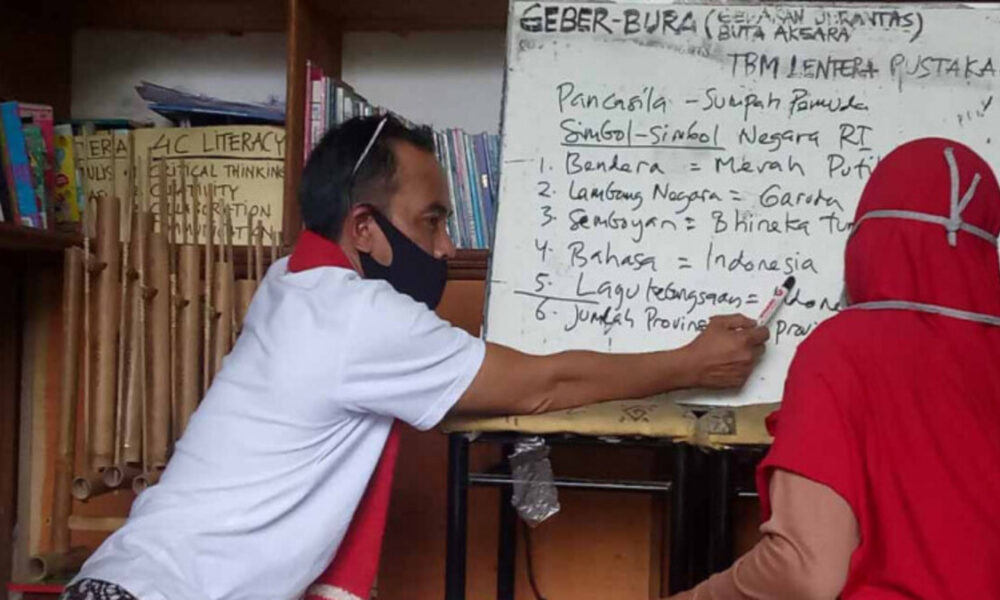 GEBER-BURA (GERAKAN BERANTAS
BUTA AKSARA)
TBM LENTERA PUSTAKA
Pancasila - Sumpah Pemuda
Simbol-Simbol Negara RI
1. Bendera = Merah Puti
2. Lambang Negara = Garuda
3. Semboyan = Bhineka Tun
4. Bahasa = Indonesia
5. Lagu kebangsaan = Indone
6. Jumlah Provins provi
ERA
4C LITERACY
CRITICAL THINKING
CREATIVITY
COLLABORATION
COMMUNICATION